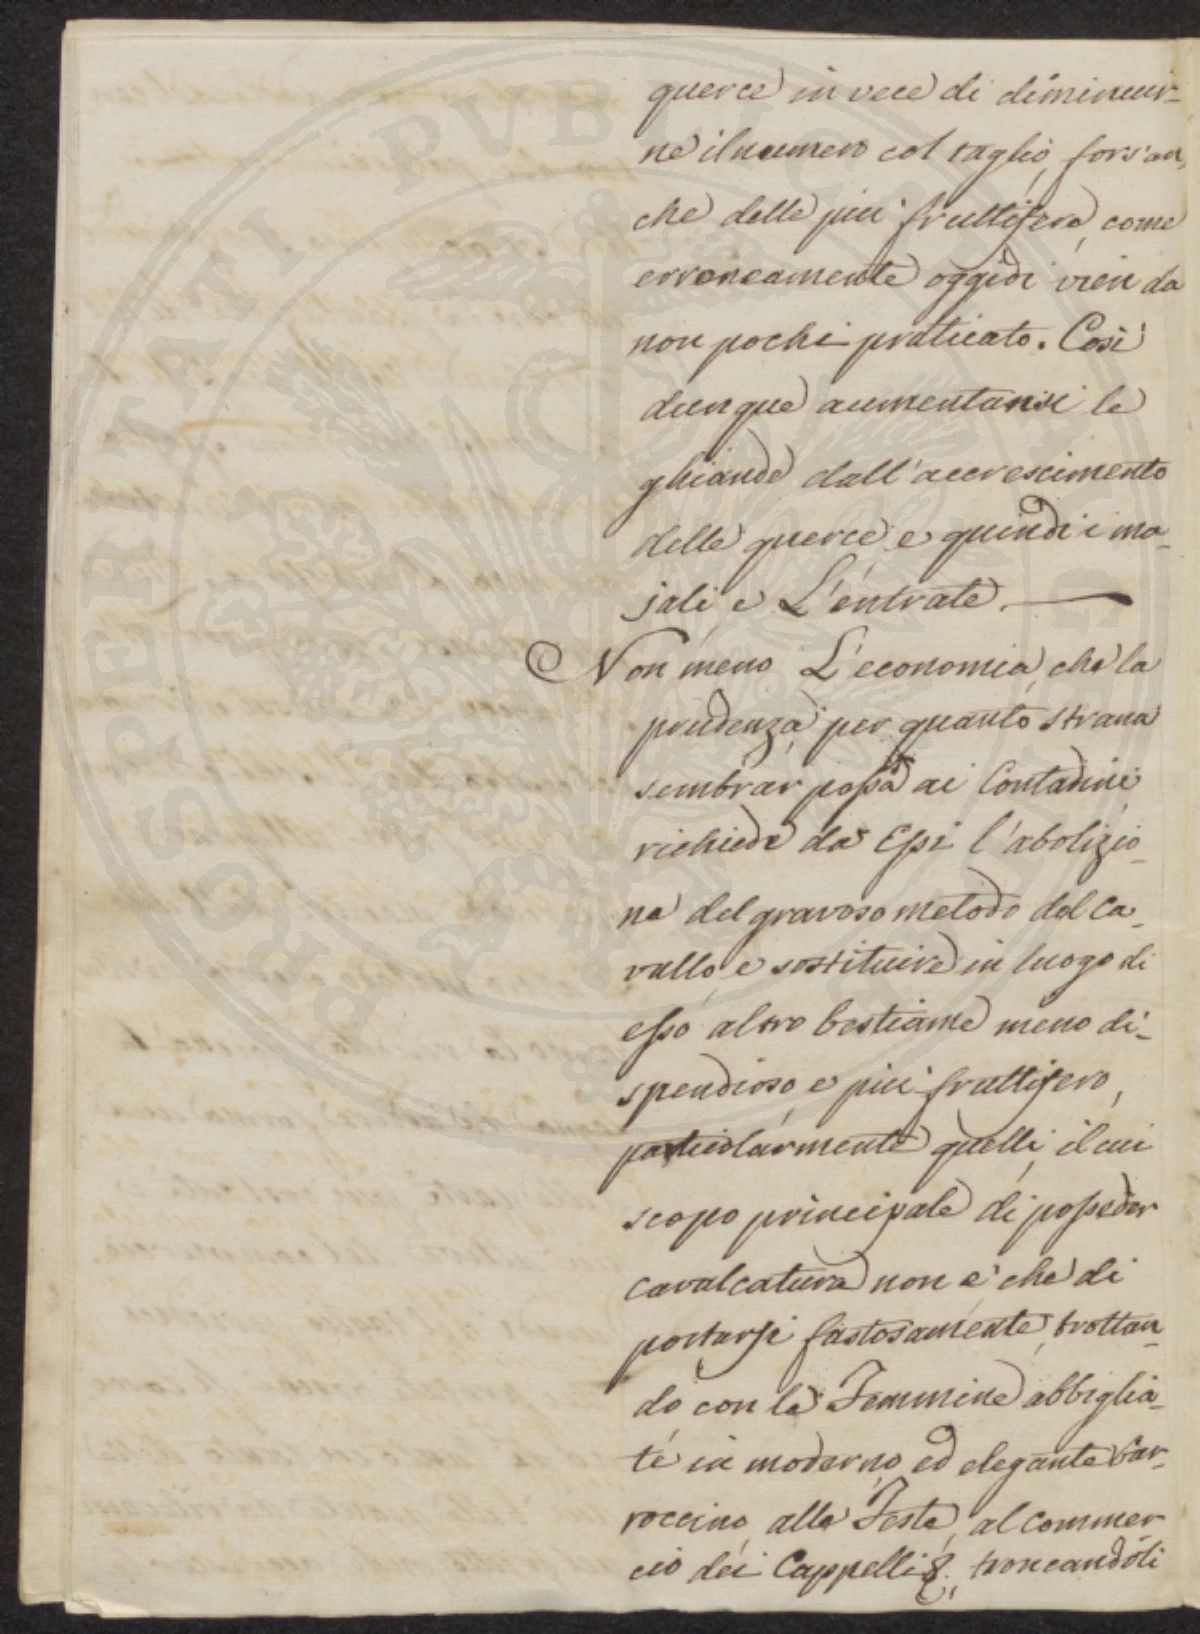 querce in vece di diminuir-
ne il numero col taglio, fors'an,
che delle piu' fruttifere, come
erroneamente oggidi vien da
non pochi praticato. Cosi'
dunque aumentansi le
ghiande dall'accrescimento
delle querce, e quindi i ma-
jali e L'entrate.
Non meno L'economia, che la
prudenza, per quanto strana
sembrar possa ai Contadini
richiede da Essi l'abolizio-
ne del gravoso metodo del Ca-
vallo, e sostituire in luogo di
esso altro bestiame meno di-
spendioso e piu' fruttifero,
particolarmente quelli, il cui
scopo principale di posseder
cavalcatura non e' che di
portarsi fastosamente, trottan-
do con le Femmine abbiglia-
te in moderno, ed elegante bar-
roccino, alle Feste, al Commer
cio dei Cappelli &., troncandoli
PROSPERITATI PVBLICAE